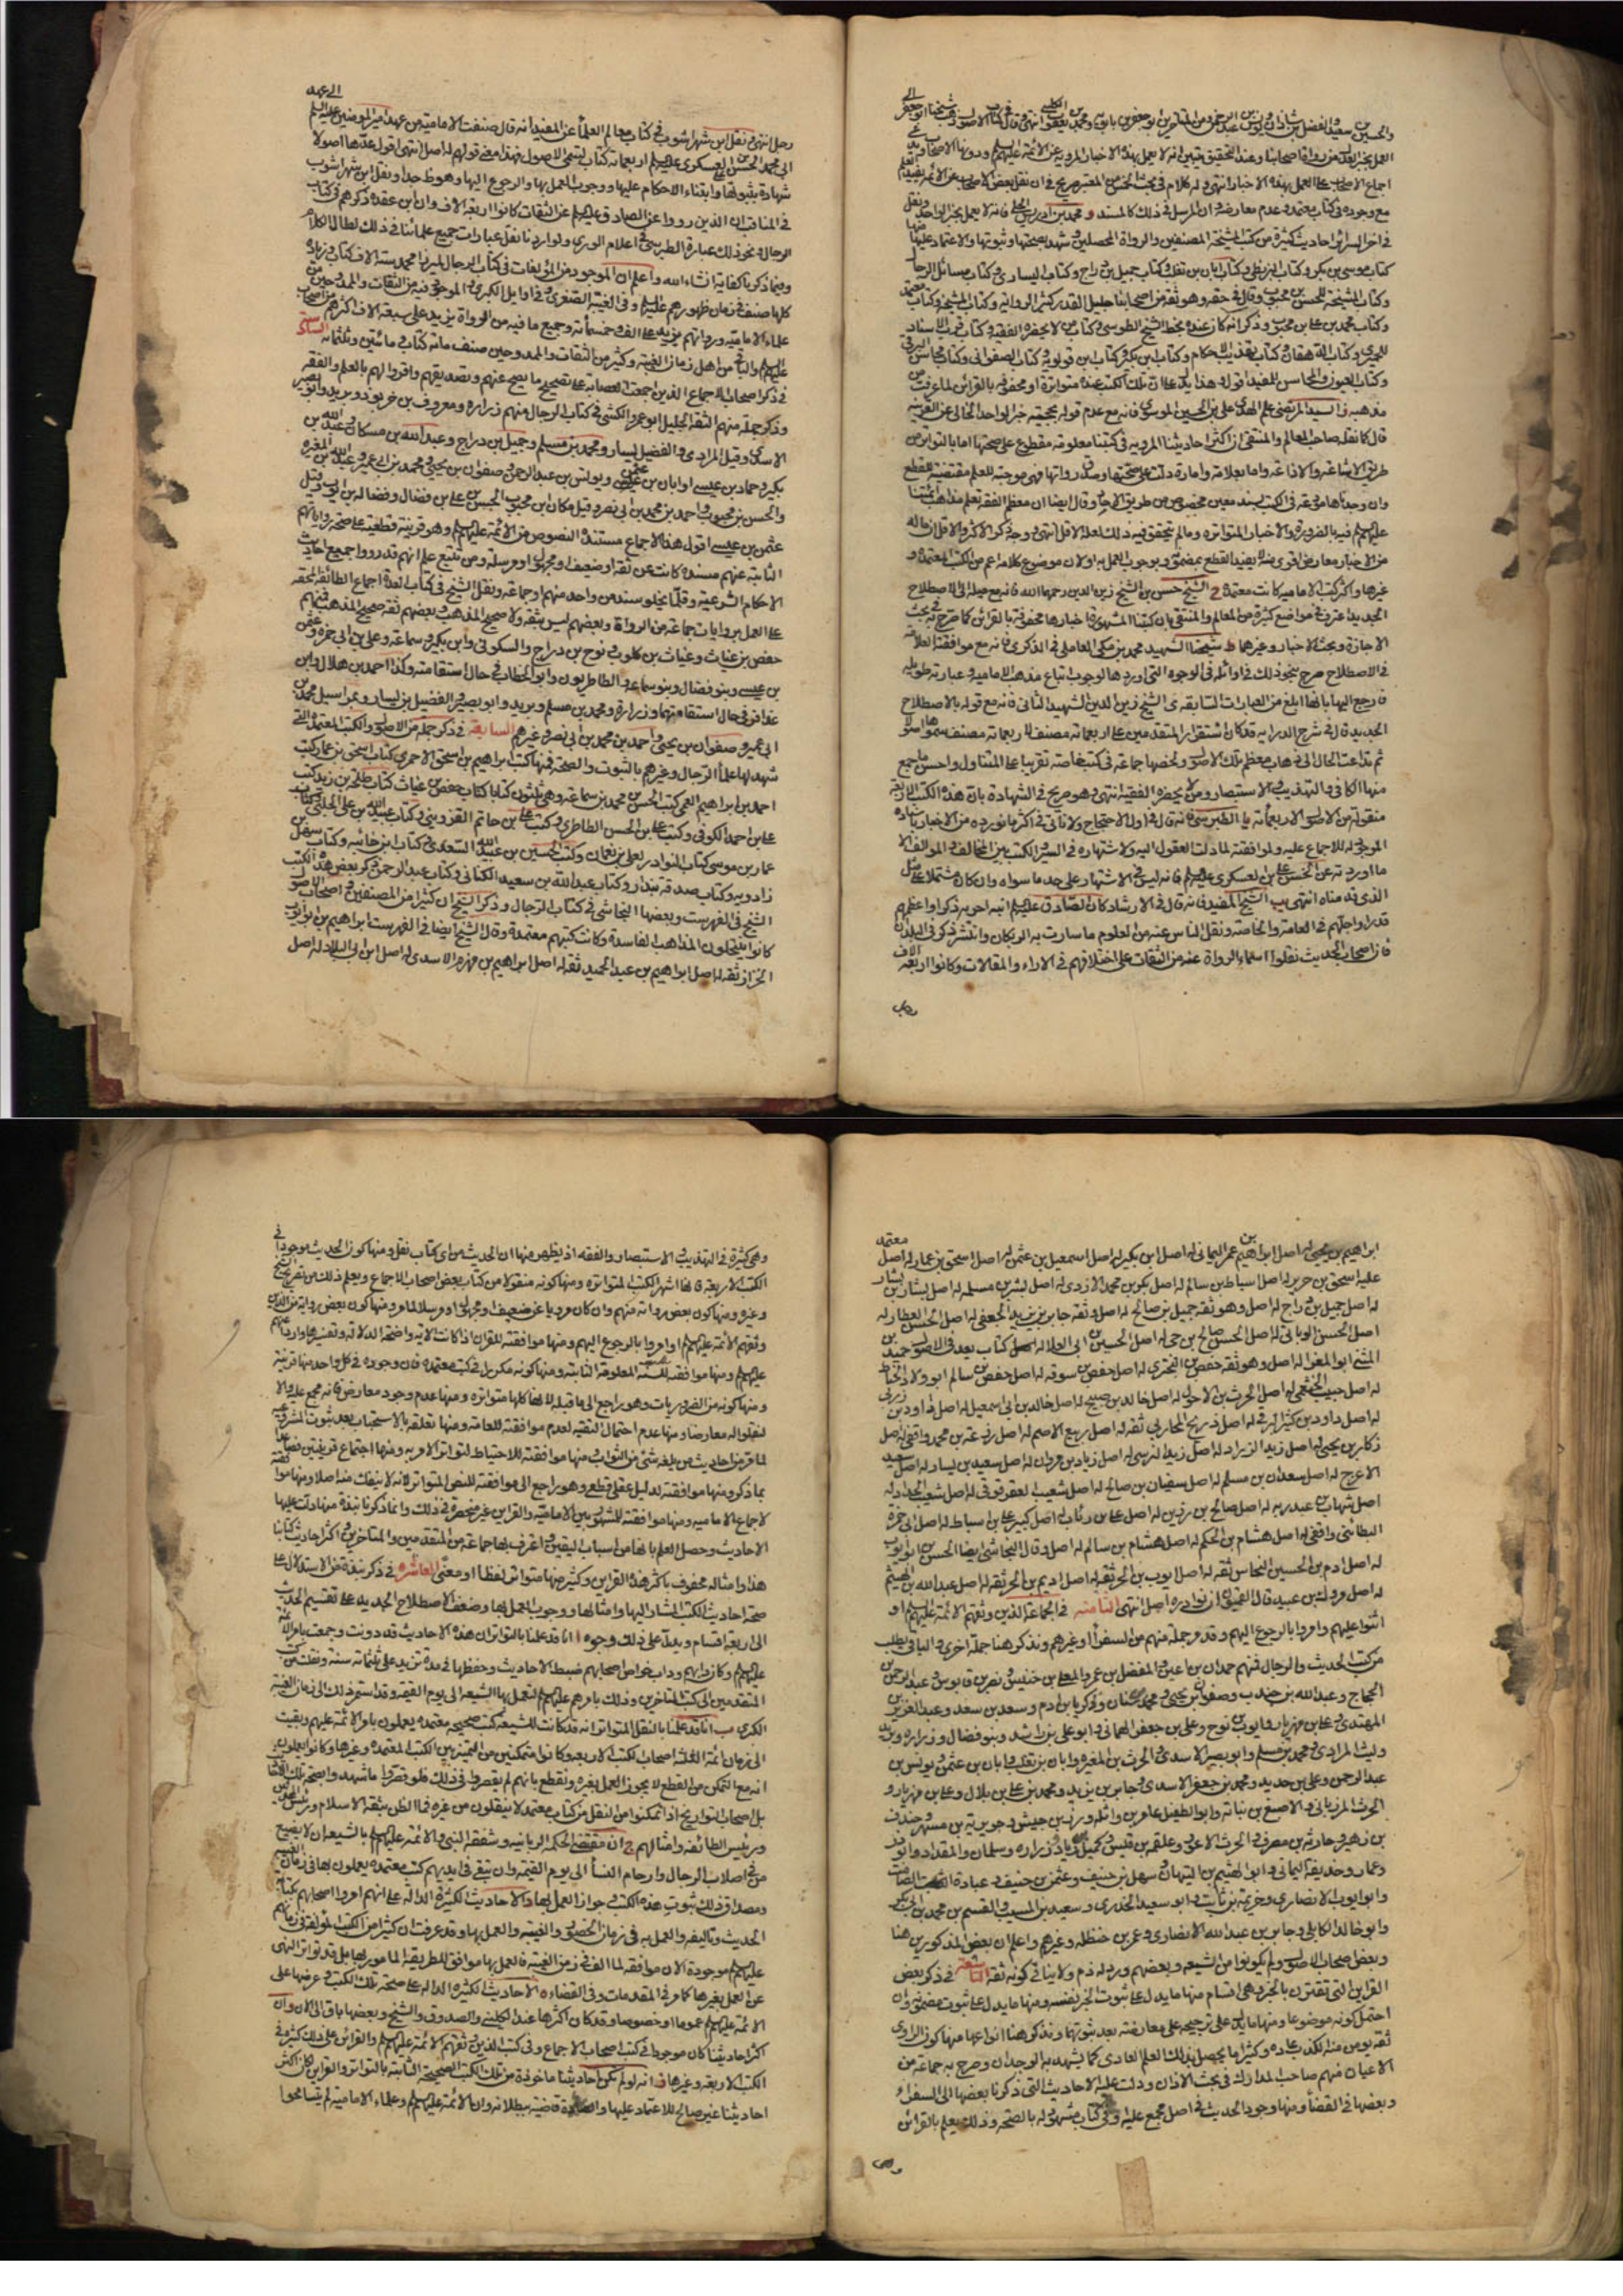 والحسين بن سعيد والفضل بن شاذان ويونس بن عبد الرحمن ومن المتاخرين ابو جعفر بن بابويه ومحمد بن يعقوب الكليني انتهى وقال في كتاب الاصول ذهب شيخنا ابو جعفر الى
العمل بخبر العدل من رواة اصحابنا وعند التحقيق تبين انه لا يعمل بهذه الاخبار المروية عن الائمة عليهم السلم ودونها الاصحاب
اجماع الاصحاب على العمل بهذه الاخبار انتهى وله كلام في بحث الخمس من المعتبر صريح في ان نقل بعض الاصحاب عن الائمة
مع وجوده في كتاب معتمد وعدم معارضه ان المرسل في ذلك كالمسند و محمد بن ادريس الحلي فانه لا يعمل بخبر الواحد ونقل
في اخر السرائر احاديث كثيرة من كتب المشيخة المصنفين والرواة المحصلين وشهد بصحتها وثبوتها والاعتماد عليها منها
كتاب موسى بن بكر وكتاب البزنطي وكتاب ابان بن تغلب وكتاب جميل بن دراج وكتاب السياري وكتاب مسائل الرجال
وكتاب المشيخة للحسن بن محبوب وقال في حقه وهو ثقة من اصحابنا جليل القدر كثير الرواية وكتاب المشيخة وكتاب معتمد
وكتاب محمد بن علي بن محبوب وذكر انه كان عنده بخط الشيخ الطوسي وكتاب من لا يحضره الفقيه وكتاب قرب الاسناد
للحميري وكتاب الدهقان وكتاب تهذيب الاحكام وكتاب ابن بكير وكتاب ابن قولويه وكتاب الصفواني وكتاب محاسن البرقي
وكتاب العيون والمحاسن للمفيد اقول وهذا يدل على ان تلك الكتب عنده متواترة او محفوفة بالقرائن لما عرفت من
مذهبه السيد المرتضى علم الهدى علي بن الحسين الموسوي فانه مع عدم قوله بحجية خبر الواحد الخالي عن القرينة
قال كما نقله صاحب المعالم والمنتقى ان اكثر احاديثنا المروية في كتبنا معلومة مقطوع على صحتها اما بالتواتر من
طريق الاشاعة والاذاعة واما بعلامة وامارة دلت على صحتها وصدق رواتها فهي موجبة للعلم مقتضية للقطع
وان وجدناها مودعة في الكتب بسند معين مخصوص من طريق الاحاد وقال ايضا ان معظم الفقه تعلم مذاهب ائمتنا
عليهم السلم فيه بالضرورة والاخبار المتواترة وما لم يتحقق فيه ذلك لعله الاقل انتهى وجه ذكر الاكثر والاقل ان ماله
من الاخبار معارض اقوى منه لا يفيد القطع بمضمونه وبوجوب العمل به اولان موضوع كلامه اعم من الكتب المعتمدة و
غيرها واكثر كتب الامامية كانت معتمدة ح الشيخ حسن بن الشيخ زين الدين رحمها الله فانه مع ميله الى الاصطلاح
الجديد اعترف في مواضع كثيرة من المعالم والمنتقى بان كتبنا المشهورة واخبارها محفوفة بالقرائن كما صرح به في بحث
الاجازة وبحث الاخبار وغيرها ط شيخنا الشهيد محمد بن مكي العاملي في الذكرى فانه مع موافقته العلامة
في الاصطلاح صرح بنحو ذلك في اوائله في الوجوه التي اوردها لوجوب اتباع مذهب الامامية وعبارته طويلة
فارجع اليها فانها ابلغ من العبارات السابقة ى الشيخ زين الدين الشهيد الثاني فانه مع قوله بالاصطلاح
الجديد قال في شرح الدراية قد كان استقر امر المتقدمين على اربعمائة مصنف لاربعمائة مصنف سموها اصولا
ثم تداعت الحال الى ذهاب معظم تلك الاصول ولخصها جماعة في كتب خاصة تقريبا على المتناول واحسن ما جمع
منها الكافي والتهذيب والاستبصار ومن لا يحضره الفقيه انتهى وهو صريح في الشهادة بان هذه الكتب الاربعة
منقولة من الاصول الاربعمائة يا الطبرسي فانه قال في اول الاحتجاج ولا ناتي في اكثر ما نورده من الاخبار باسناده
اما لوجود الاجماع عليه او لموافقته لما دلت العقول اليه ولاشتهاره في السير والكتب بين المخالف والموالف الا
ما اوردته عن الحسن بن علي العسكري عليه السلم فانه ليس في الاشتهار على حد ما سواه وان كان مشتملا على مثل
الذي قدمناه انتهى يب الشيخ المفيد فانه قال في الارشاد كان الصادق عليه السلم انبه اخوته ذكرا واعظمهم
قدرا واجلهم في العامة والخاصة ونقل الناس عنه من العلوم ما سارت به الركبان وانتشر ذكره في البلدان
فان اصحاب الحديث نقلوا اسماء الرواة عنه من الثقات على اختلافهم في الاراء والمقالات وكانوا اربعة الاف
رجل انتهى ونقل ابن شهراشوب في كتاب معالم العلماء عن المفيد انه قال صنفت الامامية من عهد امير المؤمنين عليه السلم الى عهد
ابي محمد الحسن العسكري عليه السلم اربعمائة كتاب تسمى الاصول فهذا معنى قولهم له اصل انتهى اقول عدها اصولا
شهادة بثبوتها وابتناء الاحكام عليها ووجوب العمل بها والرجوع اليها وهو ظ جدا ونقل ابن شهراشوب
في المناقب ان الذين رووا عن الصادق عليه السلم من الثقات كانوا اربعة الاف وان ابن عقدة ذكرهم في كتاب
الرجال ونحو ذلك عبارة الطبرسي في اعلام الورى ولو اردنا نقل عبارات جميع علمائنا في ذلك لطال الكلام
وفيما ذكرناه كفاية انشاء الله واعلم ان الموجود من المؤلفات في كتاب الرجال لميرزا محمد ستة الاف كتاب وزيادة
كلها صنف في زمان ظهورهم عليهم السلم وفي الغيبة الصغرى وفي اوايل الكبرى والموجود فيه من الثقات والممدوحين من
علماء الامامية ورواتهم يزيد على الف وخمسمائة وجميع ما فيه من الرواة يزيد على سبعة الاف اكثرهم من اصحاب الائمة
عليهم السلم والباقي من اهل زمان الغيبة وكثير من الثقات والممدوحين صنف مائة كتاب ومائتين وثلثمائة السابعة
في ذكر اصحاب الاجماع الذين اجمعت العصابة على تصحيح ما يصح عنهم وتصديقهم واقروا لهم بالعلم والفقه
وذكر جملة منهم الثقة الجليل ابو عمرو الكشي في كتاب الرجال منهم زرارة ومعروف بن خربوذ وبريد وابو بصير
الاسدي وقيل المرادي والفضيل بن يسار ومحمد بن مسلم وجميل بن دراج وعبد الله بن مسكان وعبد الله بن
بكير وحماد بن عيسى وابان بن عثمن ويونس بن عبد الرحمن وصفوان بن يحيى ومحمد بن ابي عمير وعبد الله بن المغيرة
والحسن بن محبوب واحمد بن محمد بن ابي نصر وقيل مكان ابن محبوب الحسن بن علي بن فضال وفضالة بن ايوب وقيل
عثمن بن عيسى اقول هذا الاجماع مستنده النصوص من الائمة عليهم السلم وهو قرينة قطعية على صحة رواياتهم
الثابتة عنهم مسندة كانت عن ثقة او ضعيف او مجهول او مرسلة ومن تتبع علم انهم قد رووا جميع احاديث
الاحكام الشرعية وقلما يخلو سند من واحد منهم او جماعة ونقل الشيخ في كتاب العدة اجماع الطائفة المحقة
على العمل بروايات جماعة من الرواة وبعضهم ليس بثقة ولا صحيح المذهب وبعضهم ثقة صحيح المذهب فمنهم
حفص بن غياث وغياث بن كلوب ونوح بن دراج والسكوني وابن بكير وسماعة وعلي بن ابي حمزة وعثمن
بن عيسى وبنو فضال وبنو سماعة والطاطريون وابو الخطاب في حال استقامته وكذا احمد بن هلال وابن
عذافر في حال استقامتهما وزرارة ومحمد بن مسلم وبريد وابو بصير والفضيل بن يسار ومراسيل محمد بن
ابي عمير وصفوان بن يحيى واحمد بن محمد بن ابي نصر وغيرهم السابعة في ذكر جملة من الاصول والكتب المعتمدة التي
شهد لها علماء الرجال وغيرهم بالثبوت والصحة فمنها كتب ابراهيم بن اسحق الاحمري كتاب اسحق بن عمار كتب
احمد بن ابراهيم العمي كتب الحسن بن محمد بن سماعة وهي ثلثون كتابا كتاب حفص بن غياث كتاب طلحة بن زيد كتب
علي بن احمد الكوفي وكتب علي بن الحسن الطاطري وكتب علي بن حاتم القزويني وكتاب عبيد الله بن علي الحلبي كتاب
عمار بن موسى كتاب النوادر لعلي بن نعمان وكتب الحسين بن عبيد الله السعدي وكتاب ابن خانبه وكتاب سهل بن
زادويه وكتاب صدقة بن بندار وكتاب عبد الله بن سعيد الكناني وكتاب عبد الرحمن ذكر بعض هذه الكتب
الشيخ في الفهرست وبعضها النجاشي في كتاب الرجال وذكر الشيخ ان كثيرا من المصنفين واصحاب الاصول
كانوا ينتحلون المذاهب الفاسدة وكانت كتبهم معتمدة وقال الشيخ ايضا في الفهرست ابراهيم بن ابو ايوب
الخزاز ثقة له اصل ابراهيم بن عبد الحميد ثقة له اصل ابراهيم بن مهزم الاسدي له اصل ابن ابي البلاد له اصل
ابراهيم بن يحيى له اصل ابراهيم بن عمر اليماني له اصل ابن بكير له اصل اسمعيل بن عثمن له اصل اسحق بن عمار له اصل معتمد
عليه اسحق بن جرير له اصل اسباط بن سالم له اصل بكر بن محمد الازدي له اصل بشر بن مسلمة له اصل بشار بن يسار
له اصل جميل بن دراج له اصل وهو ثقة جميل بن صالح له اصل وثقه جابر بن يزيد الجعفي له اصل الحسن العطار له
اصل الحسن الرباطي له اصل الحسن بن صالح بن حي له اصل الحسين بن ابي العلا له كتاب يعد في الاصول حميد بن
المثنى ابو المغرا له اصل وهو ثقة حفص بن البختري له اصل حفص بن سوقة له اصل حفص بن سالم ابو ولاد الحناط
له اصل حبيب الخثعمي له اصل الحرث بن الاحول له اصل خالد بن صبيح له اصل خالد بن ابي اسمعيل له اصل داود بن زربي
له اصل داود بن كثير الرقي له اصل ذريح المحاربي ثقة له اصل ربيع الاصم له اصل زرعة بن محمد واقفي له اصل
زكار بن يحيى له اصل زيد الزراد له اصل زيد النرسي له اصل زياد بن مروان له اصل سعيد بن يسار له اصل سعيد
الاعرج له اصل سعدان بن مسلم له اصل سفيان بن صالح له اصل شعيب العقرقوفي له اصل شعيب الحداد له
اصل شهاب بن عبد ربه له اصل صالح بن رزين له اصل علي بن رئاب له اصل كبير علي بن اسباط له اصل ابن ابي حمزة
البطائني واقفي له اصل هشام بن الحكم له اصل هشام بن سالم له اصل وقال النجاشي ايضا الحسن بن ايوب
له اصل ادم بن الحسين النخاس ثقة له اصل ايوب بن الحر ثقة له اصل اديم بن الحر ثقة له اصل عبد الله بن الهيثم
له اصل مروك بن عبيد قال القميون ان نوادره اصل انتهى الثامنة في الجماعة الذين وثقهم الائمة عليهم السلم او
اثنوا عليهم وامروا بالرجوع اليهم وقد مر جملة منهم من السفراء وغيرهم ونذكر هنا جملة اخرى والباقي يطلب
من كتب الحديث والرجال فمنهم حمدان بن اعين والمفضل بن عمر والمعلى بن خنيس ونصر بن قابوس وعبد الرحمن بن
الحجاج وعبد الله بن جندب وصفوان بن يحيى ومحمد بن سنان وزكريا بن ادم وسعد بن سعد وعبد العزيز بن
المهتدي وعلي بن مهزيار وايوب بن نوح وعلي بن جعفر الهماني وابو علي بن راشد وبنو فضال وزرارة وبريد
وليث المرادي ومحمد بن مسلم وابو بصير الاسدي والحرث بن المغيرة وابان بن تغلب وابان بن عثمن ويونس بن
عبد الرحمن وعلي بن حديد ومحمد بن جعفر الاسدي وجابر بن يزيد ومحمد بن علي بن بلال وعلي بن مهزيار و
الحرث المرزباني والاصبغ بن نباتة وابو الطفيل عامر بن واثلة ورزين حبيش وجويرية بن مسهر وجندب
بن زهير وحارثة بن مصرف والحرث الاعور وعلقمة بن قيس وكميل بن زياد وزرارة وسلمان والمقداد وابو ذر
وعمار وحذيفة اليماني وابو الهيثم بن التيهان وسهل بن حنيف وعثمن بن حنيف وعبادة بن الصامت
وابو ايوب الانصاري وخزيمة بن ثابت وابو سعيد الخدري وسعيد بن المسيب والقسم بن محمد بن ابي بكر
وابو خالد الكابلي وجابر بن عبد الله الانصاري وعمر بن حنظلة وغيرهم واعلم ان بعض المذكورين هنا
وبعض اصحاب الاصول لم يكونوا من الشيعة وبعضهم ورد له ذم ولا ينافي كونه ثقة التاسعة في ذكر بعض
القراين التي تقترن بالخبر وهي اقسام منها ما يدل على ثبوت الخبر بنفسه ومنها ما يدل على ثبوت مضمونه وان
احتمل كونه موضوعا ومنها ما يدل على ترجيحه على معارضه بعد ثبوتهما ونذكر هنا انواعها منها كون الراوي
ثقة يومن منه الكذب عادة وكثيرا ما يحصل بذلك العلم العادي كما يشهد به الوجدان وصرح به جماعة من
الاعيان منهم صاحب المدارك في بحث الاذان ودلت عليه الاحاديث التي ذكرنا بعضها الى السفراء
وبعضها في القضاء ومنها وجود الحديث في اصل مجمع عليه وفي كتاب مشهود له بالصحة وذلك يعلم بالقرائن
وهي كثيرة في التهذيب والاستبصار والفقه اذ يظهر منها ان الحديث من اي كتاب نقل ومنها كون الحديث موجودا في
الكتب الاربعة فانها اشهر الكتب المتواترة ومنها كونه منقولا من كتاب بعض اصحاب الاجماع ويعلم ذلك من تصريح الشيخ
وغيره ومنها كون بعض رواته منهم وان كان مرويا عن ضعيف او مجهول او مرسلا لما مر ومنها كون بعض رواته من الذين
وثقهم الائمة عليهم السلم او امروا بالرجوع اليهم ومنها موافقته للقران اذا كانت الاية واضحة الدلالة وتفسيرها وارد عنهم
عليهم السلم ومنها موافقته للسنة المعلومة الثابتة ومنها كونه مكررا في كتب معتمدة فان وجوده في كل واحد منها قرينة
ومنها كونه من الضروريات وهو راجع الى ما قبله لانها كلها متواترة ومنها عدم وجود معارض فانه مجمع عليه والا
لنقلوا له معارضا ومنها عدم احتمال التقية لعدم موافقته للعامة ومنها تعلقه بالاستحباب بعد ثبوت المشروعية
لما مر من احاديث من بلغه شئ من الثواب ومنها موافقته للاحتياط لتواتر الامر به ومنها اجتماع قرينتين فصاعدا
مما ذكر ومنها موافقته لدليل عقلي قطعي وهو راجع الى موافقته للنص المتواتر لانه لا ينفك منه اصلا ومنها موافقته
لاجماع الامامية ومنها موافقته للمشهور بين الامامية والقراين غير منحصرة في ذلك وانما ذكرنا نبذة منها دلت عليها
الاحاديث وحصل العلم بانها من اسباب اليقين واعترف بها جماعة من المتقدمين والمتاخرين واكثر احاديث كتابنا
هذا وامثاله محفوف باكثر هذه القراين وكثير منها متواتر لفظا او معنى العاشرة في ذكر نبذة من الاستدلال على
صحة احاديث الكتب المشار اليها وامثالها ووجوب العمل بها وضعف الاصطلاح الجديد على تقسيم الحديث
الى اربعة اقسام ويدل على ذلك وجوه ا انا قد علمنا بالتواتر ان هذه الاحاديث قد دونت وجمعت بامر الائمة
عليهم السلم وكان دابهم وداب خواص اصحابهم ضبط الاحاديث وحفظها في مدة تزيد على ثلثمائة سنة ونقلت من كتب
المتقدمين الى كتب المتاخرين وذلك بامرهم عليهم السلم لتعمل بها الشيعة الى يوم القيمة وقد استمر ذلك الى زمان الغيبة
الكبرى ب انا قد علمنا بالنقل المتواتر انه قد كانت للشيعة كتب صحيحة معتمدة يعملون بامر الائمة عليهم وبقيت
الى زمان ائمة الثلثة اصحاب الكتب الاربعة وكانوا متمكنين من التمييز بين الكتب المعتمدة وغيرها وكانوا يعلمون
انه مع التمكن من القطع لا يجوز العمل بغيره ونقطع بانهم لم يقصروا في ذلك فلو قصروا ما شهدوا بصحة تلك الكتب
بل اصحاب التواريخ اذا تمكنوا من النقل من كتاب معتمد لا ينقلون من غيره فما الظن بثقة الاسلام ورئيس المحدثين
ورئيس الطائفة وامثالهم ح ان مقتضى الحكمة الربانية وشفقة النبي والائمة عليهم السلم بالشيعة ان لا يضيع
من في اصلاب الرجال وارحام النساء الى يوم القيمة وان تبقى في ايديهم كتب معتمدة يعملون بها في زمان الغيبة
ومصداق ذلك ثبوت هذه الكتب وجواز العمل بها د الاحاديث الكثيرة الدالة على انهم امروا اصحابهم بكتابة
الحديث وتاليفه والعمل به في زمان الحضور والغيبة والعمل بها وقد عرفت ان كثيرا من الكتب المؤلفة في زمانهم
عليهم السلم موجودة الان موافقة لما الف في زمن الغيبة فالعمل بها موافق للطريقة المامور بها بل قد تواتر النهي
عن العمل بغيرها كما مر في المقدمات وفي القضاء ه الاحاديث الكثيرة الدالة على صحة تلك الكتب وعرضها على
الائمة عليهم السلم عموما وخصوصا وقد كان اكثرها عند الكليني والصدوق والشيخ وبعضها باق الى الان و ان
اكثر احاديثنا كان موجودا في كتب اصحاب الاجماع وفي كتب الذين وثقهم الائمة عليهم السلم والقرائن على ذلك كثيرة في
الكتب الاربعة وغيرها ز انه لو لم تكن احاديثنا ماخوذة من تلك الكتب الصحيحة الثابتة بالتواتر والقرائن لكان اكثر
احاديثنا غير صالح للاعتماد عليها والعادة قاضية ببطلانه وان الائمة عليهم السلم وعلماء الامامية لم يتسامحوا